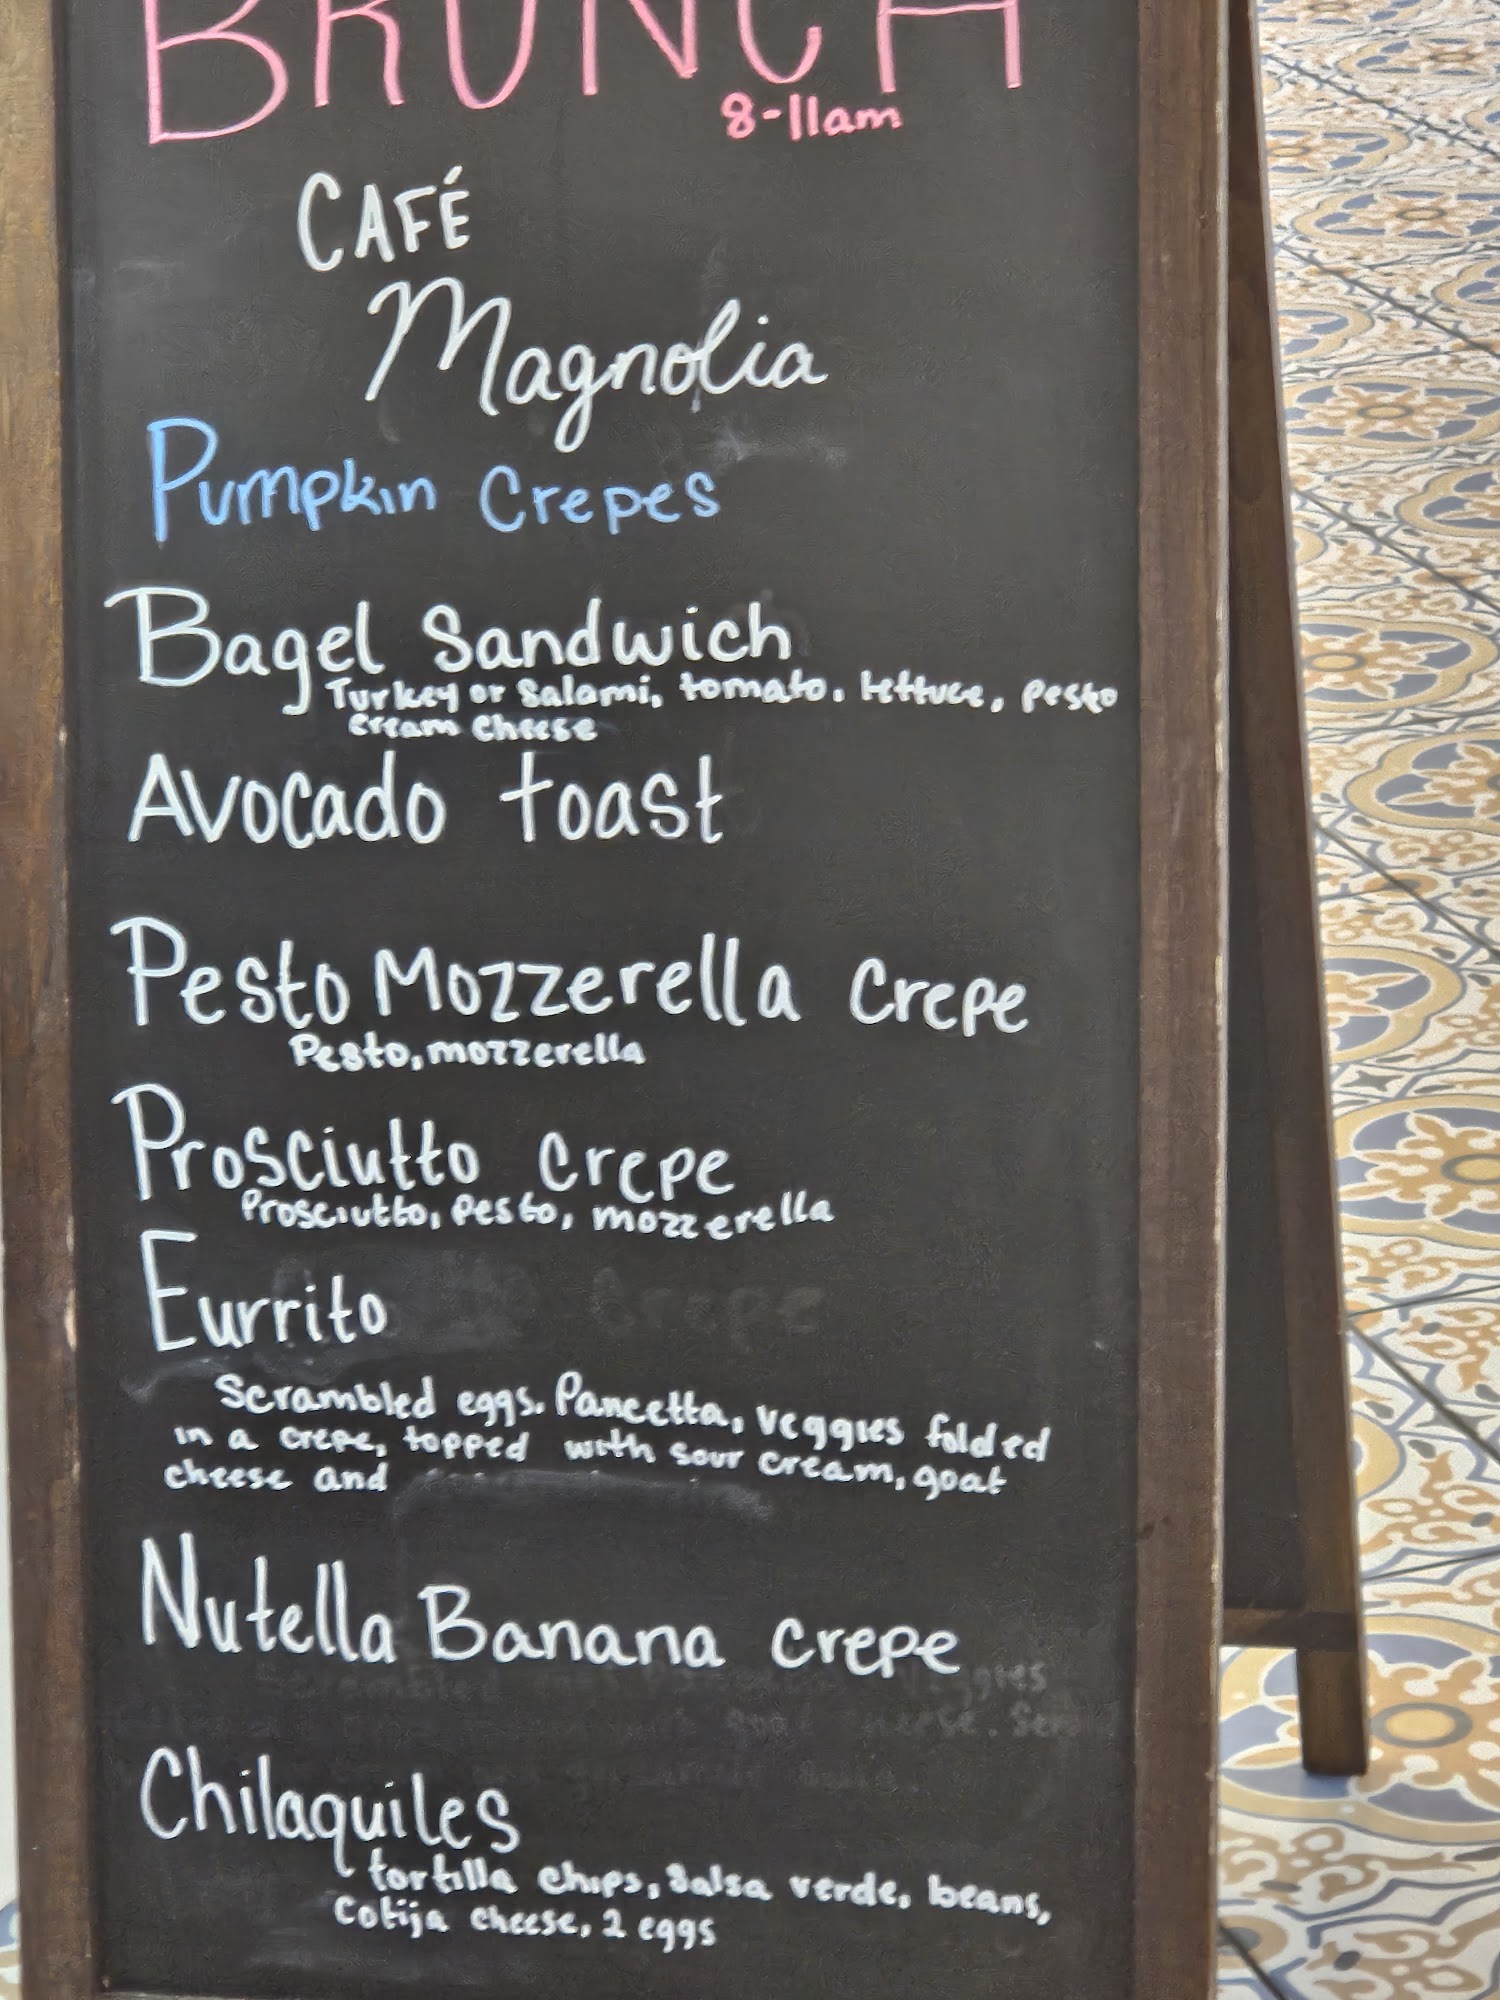 BRUNCH
8-11am
CAFÉ
Magnolia
Pumpkin Crepes
Bagel Sandwich
Turkey or Salami, tomato, lettuce, pesto
cream cheese
Avocado toast
Pesto Mozzerella Crepe
Pesto, mozzerella
Prosciutto crepe
Prosciutto, pesto, mozzerella
Eurrito
Scrambled eggs, Pancetta, veggies folded
in a crepe, topped with sour cream, goat
cheese and
Nutella Banana crepe
Chilaquiles
tortilla chips, salsa verde, beans,
Cotija cheese, 2 eggs